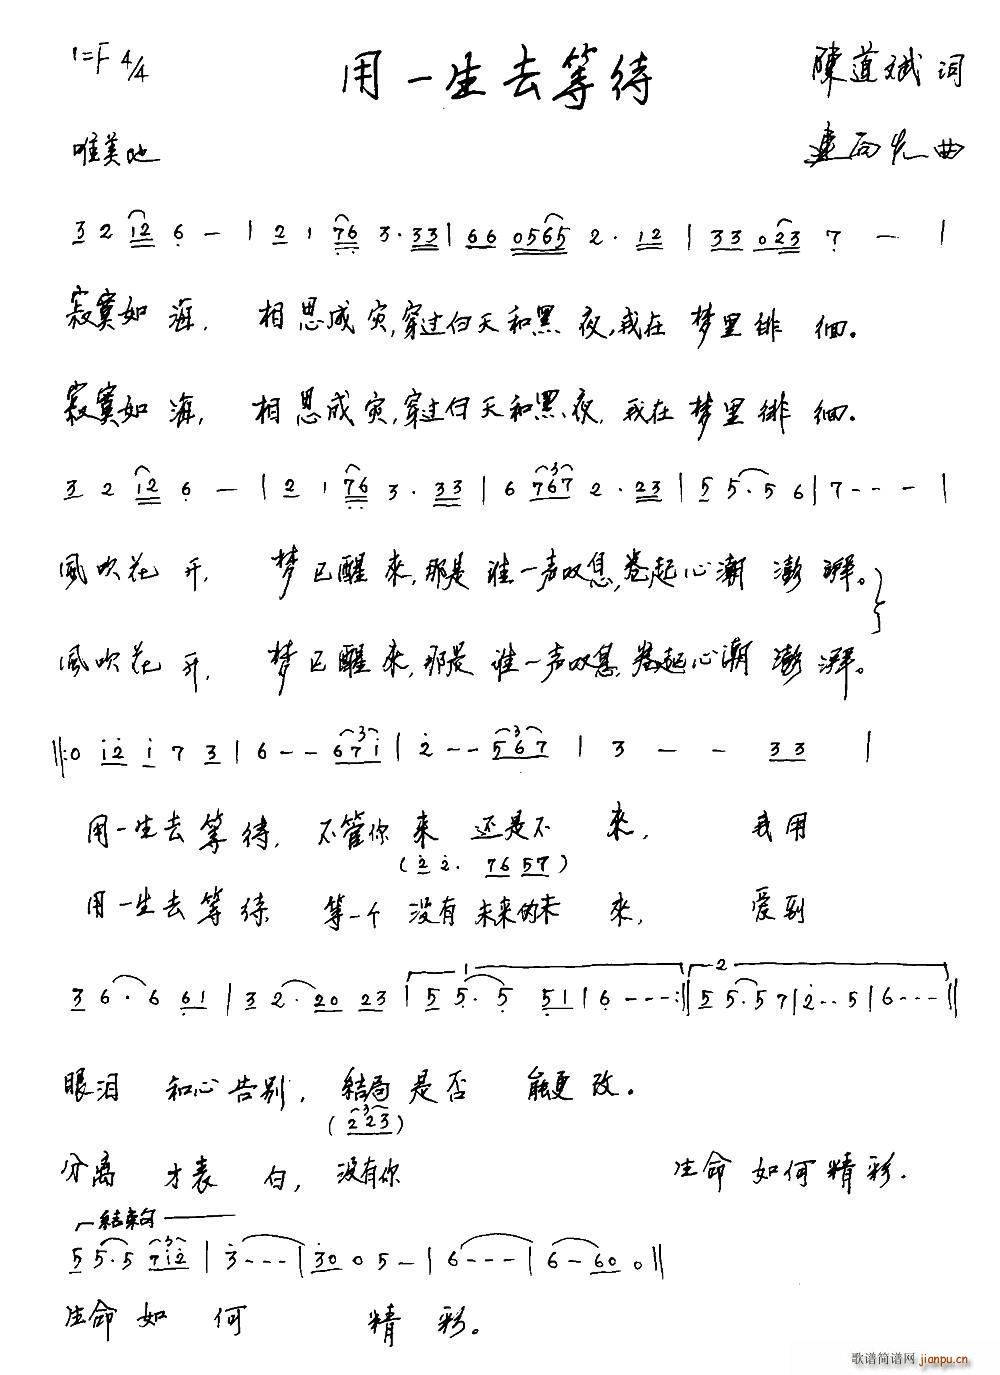 1=F 4/4
用一生去等待
陳道斌 词
唯美地
曲
3 2 12 6 — | 2 1 76 3· 33 | 66 0565 2· 12 | 33 023 7 — |
寂寞如海，相思成灾，穿过白天和黑夜，我在梦里徘徊。
寂寞如海，相思成灾，穿过白天和黑夜，我在梦里徘徊。
3 2 12 6 — | 2 1 76 3· 33 | 6 767 2· 23 | 5 5· 5 6 | 7 - - - |
風吹花开，梦已醒来，那是谁一声叹息，卷起心潮澎湃。
風吹花开，梦已醒来，那是谁一声叹息，卷起心潮澎湃。
‖: 0 12 1 7 3 | 6 - - 671 | 2 - - 567 | 3 — — 33 |
用一生去等待，不管你来还是不来，我用
(2 2· 76 57)
用一生去等待 等一个没有未来的未來，爱到
1 2
3 6· 6 61 | 3 2· 20 23 | 5 5· 5 51 | 6 - - - :‖ 5 5· 5 7 | 2 - - 5 | 6 - - - ‖
眼泪和心告别，结局是否能更改。
(2 23)
分离才表白，没有你 生命如何精彩.
结束句
5 5· 5 712 | 3 - - - | 30 0 5 — | 6 - - - | 6 — 60 0 ‖
生命如何精彩。
歌谱简谱网 jianpu.cn